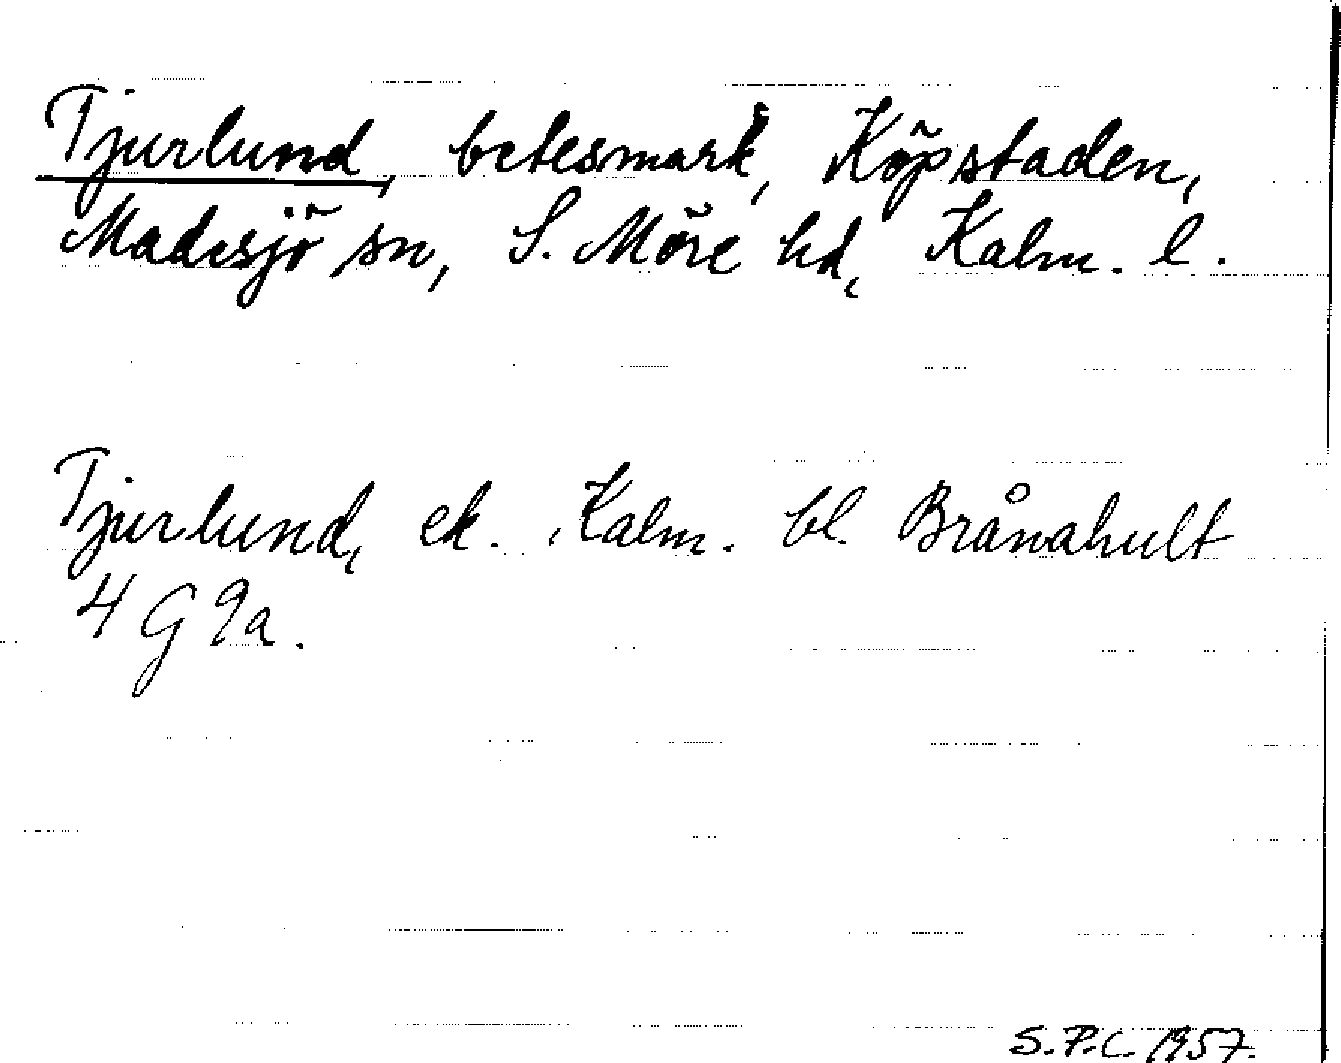 Tjurlund, betesmark, Köpstaden,
Madesjö sn, S. Möre hd, Kalm. l.
Tjurlund, ek. Kalm. bl. Brånahult
4 G 9a.
S.P.C. 1957.